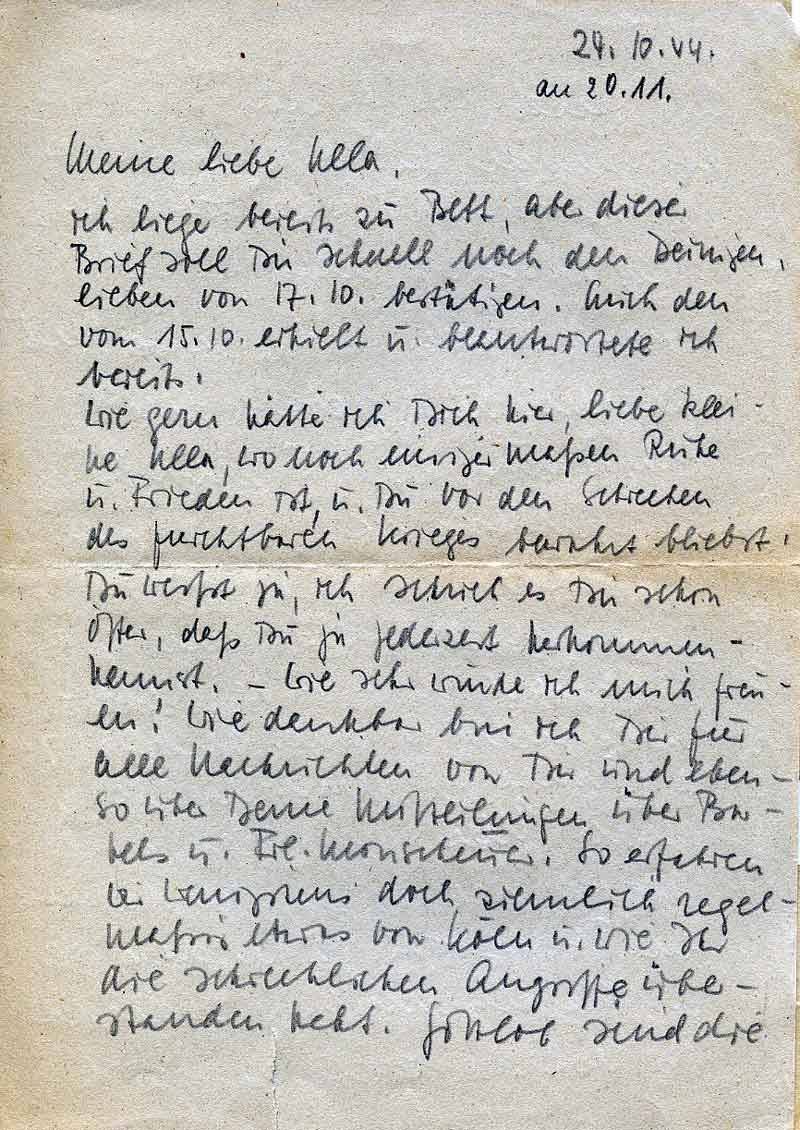 24.10.44.
an 20.11.
Meine liebe Ulla,
ich liege bereits zu Bett, aber dieser
Brief soll Dir schnell noch den Deinigen,
lieben vom 17.10. bestätigen. Auch den
vom 15.10. erhielt u. beantwortete ich
bereits.
Wie gern hätte ich Dich hier, liebe klei-
ne Ulla, wo noch einigermaßen Ruhe
u. Frieden ist, u. Du vor den Schrecken
des furchtbaren Krieges bewahrt bliebst.
Du weißt ja, ich schrieb es Dir schon
öfter, daß Du ja jederzeit herkommen
kannst. – Wie sehr würde ich mich freu-
en! Wie dankbar bin ich Dir für
alle Nachrichten von Dir und eben-
so über Deine Mitteilungen über Bar-
tels u. Frl. Monscheuer. So erfahren
wir wenigstens doch ziemlich regel-
mäßig etwas von Köln u. wie Ihr
die schrecklichen Angriffe über-
standen habt. Gottlob sind die